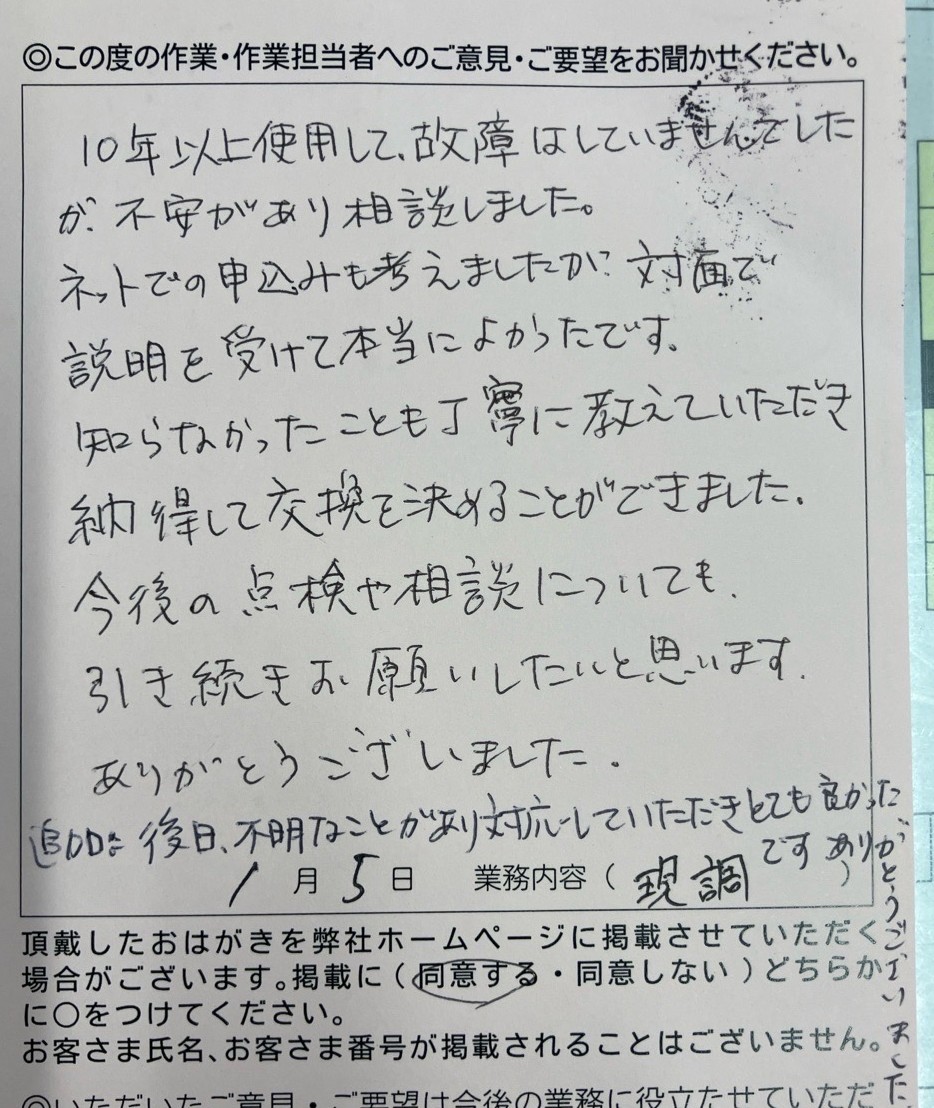 ◎この度の作業・作業担当者へのご意見・ご要望をお聞かせください。
10年以上使用して、故障はしていませんでした
が、不安があり相談しました。
ネットでの申込みも考えましたが、対面で
説明を受けて本当によかったです。
知らなかったことも丁寧に教えていただき
納得して交換を決めることができました。
今後の点検や相談についても、
引き続きお願いしたいと思います。
ありがとうございました。
追加: 後日、不明なことがあり対応していただきとても良かった
です ありがとうございました
1月5日 業務内容(現調)
頂戴したおはがきを弊社ホームページに掲載させていただく
場合がございます。掲載に(同意する・同意しない)どちらか
に○をつけてください。
お客さま氏名、お客さま番号が掲載されることはございません。
◎いただいたご意見・ご要望は今後の業務に役立たせていただ